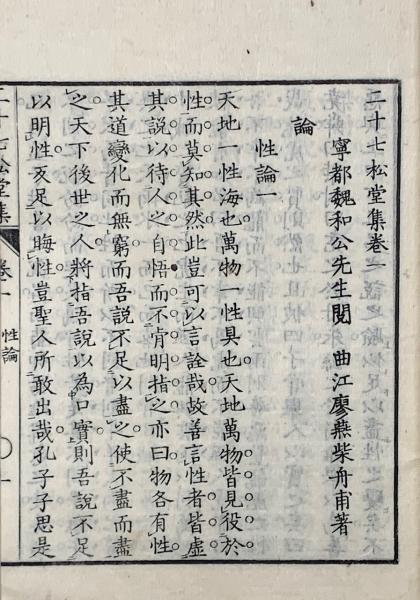 二十七松堂集卷一
寧都魏和公先生閱　曲江廖燕柴舟甫著
論
性論一
天地一性海也萬物一性具也天地萬物皆見役於
性而莫知其然此豈可以言詮哉故善言性者皆虛
其說以待人之自悟而不肯明指之亦曰物各有性
其道變化而無窮而吾說不足以盡之使不盡而盡
之天下後世之人將指吾說以為口實則吾說不足
以明性亥足以晦性豈聖人所敢出哉孔子子思是
二十七松堂集
卷一
性論
一